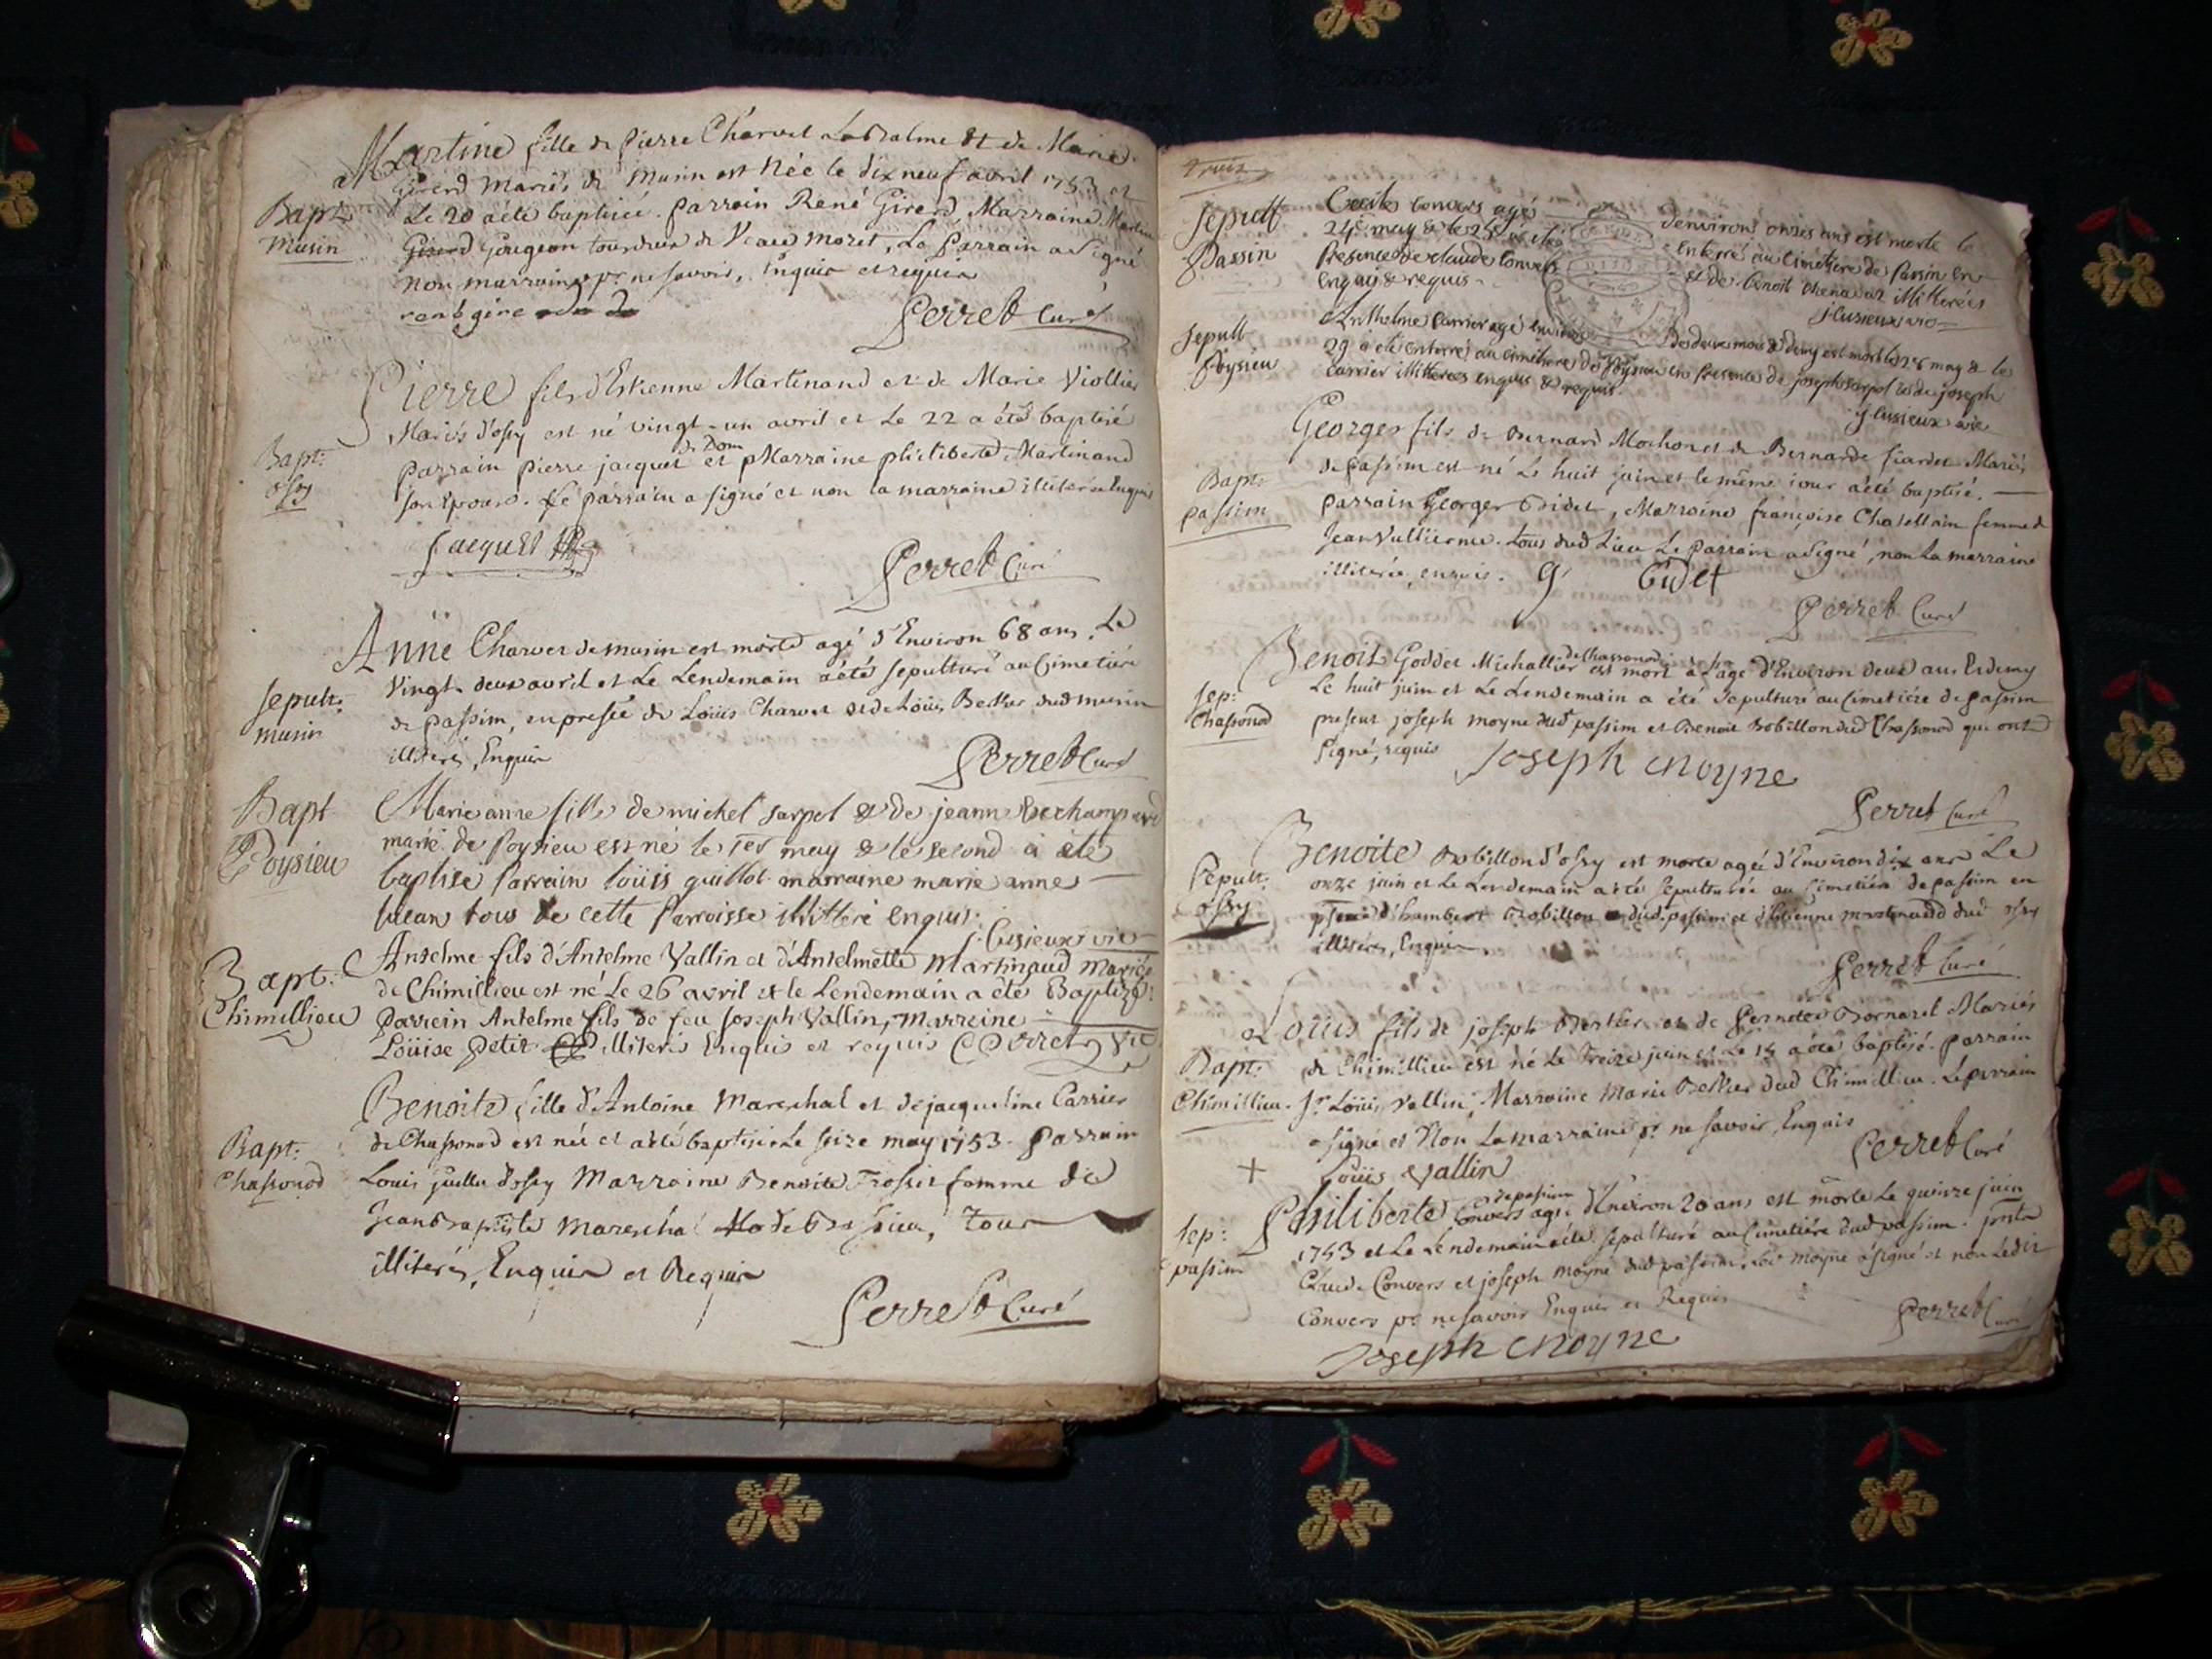 Martine fille de Pierre Charvet Labalme et de Marie
Girerd mariés de Musin est Née le dix neuf avril 1753 et
Bapt:
Musin
Le 20 a été baptisée. parrain René Girerd, Marraine
Gougeon de moret, Le Parrain a Signé
non marraine pr. ne savoir, Enquis et requis
rene gire
Perret Curé
Pierre fils d'Estienne Martinand et de Marie Viollier
Mariés d'osry est né vingt-un avril et Le 22 a été baptisé
Bapt:
osry
parrain pierre jacquet et Marraine philiberte Martinand
son Epouse. Le parrain a signé et non la marraine illiterée Enquis
jacquet
Perret Curé
Anne Charvet de musin est morte agé d'Environ 68 ans. Le
Vingt-deux avril et Le Lendemain a été sepulturé au Cimetiére
Sepult:
musin
de passim, en presēe de Loüis Charvet et de Loüis dud musin
illiterés, Enquis
Perret Curé
Bapt
Poysieu
Marie anne fille de michel sarpel & de jeanne
marié de Poysieu est né le 1er may & le second a été
baptisé Parrain loüis guillot marraine marie anne
tous de cette Parroisse illitteré enquis.
j. Cusieux vic
Bapt:
Chimillieu
Anselme fils d'Antelme Vallin et d'Antelmette Martinaud Mariés
de Chimillieu est né Le 26 avril & le Lendemain a été Baptizé:
Parrein Antelme fils de feu Joseph Vallin, Marreine
Loüise Petit illiterés Enquis et requis Perret Vic
Benoite fille d'Antoine Mareschal et de jacqueline Carrier
Bapt:
Chassonod
de Chassonod est née et a été baptisée Le seize may 1753. Parrain
Louis guillu d'osry Marraine Benoite Trossit femme de
Jean Baptiste Mareschal tous
illiterés, Enquis et Requis
Perret Curé
trois
Sepult
Passin
convers agé d'environs onzes ans est morte le
24e may & le 25 a été Enterré au cimetiére de Parsin en
Presence de claude Convers & de Benoit illitterées
enquis & requis
j Cusieux vic
Sepult
Poysieu
Anthelme Carrier agé environs de deux mois & demy est mort le 28 may & le
29 a été enterré au cimetiere de Poysieu en Presence de joseph sarpel & de joseph
carrier illitterées enquis & requis.
j Cusieux vic
Georges fils de Bernard Mochon et de Bernarde fiardet Mariés
Bapt:
passim
de passim est né Le huit juin et le même jour a été baptisé.
parrain George Bidet, Marraine françoise Chatellain femme d
Jean Vullierme. tous dud Lieu Le Parrain a Signé, non La marraine
illiterée, enquis. G Bidet
Perret Curé
Benoit Goddet Michallier de Chassonod est mort a l'age d'Environ deux ans Et demy
Sep:
Chassonod
Le huit juin et Le Lendemain a été Sepulturé au Cimetiére de passim
presens joseph moyne dud passim et Benoit Robillon dud Chassonod qui ont
signé, requis
Joseph Moyne
Perret Curé
Benoite Robillon d'osry est morte agée d'Environ dix ans Le
Sepult:
osry
onze juin et Le Lendemain a été sepulturée au Cimetiére de passim en
psēce d'humbert Robillon dud. passim et d'Estienne martinand dud osry
illiterés, Enquis
Perret Curé
Loüis fils de joseph Berthier et de Pernette Bornard Mariés
Bapt:
Chimillieu.
de Chimillieu est né Le Treize juin et Le 14 a été baptisé. parrain
Sr. Loüis Vallin, Marraine Marie dud Chimillieu. Le parrain
a signé et Non La marraine pr. ne savoir, Enquis
Perret Curé
+ Loüis Vallin
Philiberte Convers de passim agée d'Environ 20 ans est morte Le quinze juin
Sep:
passim
1753 et Le Lendemain a été sepulturé au Cimetiére dud passim. psnts
Claude Convers et joseph moyne dud passim. Led. Moyne a signé et non Ledit
Convers pr. ne savoir Enquis et Requis
Perret Curé
Joseph Moyne